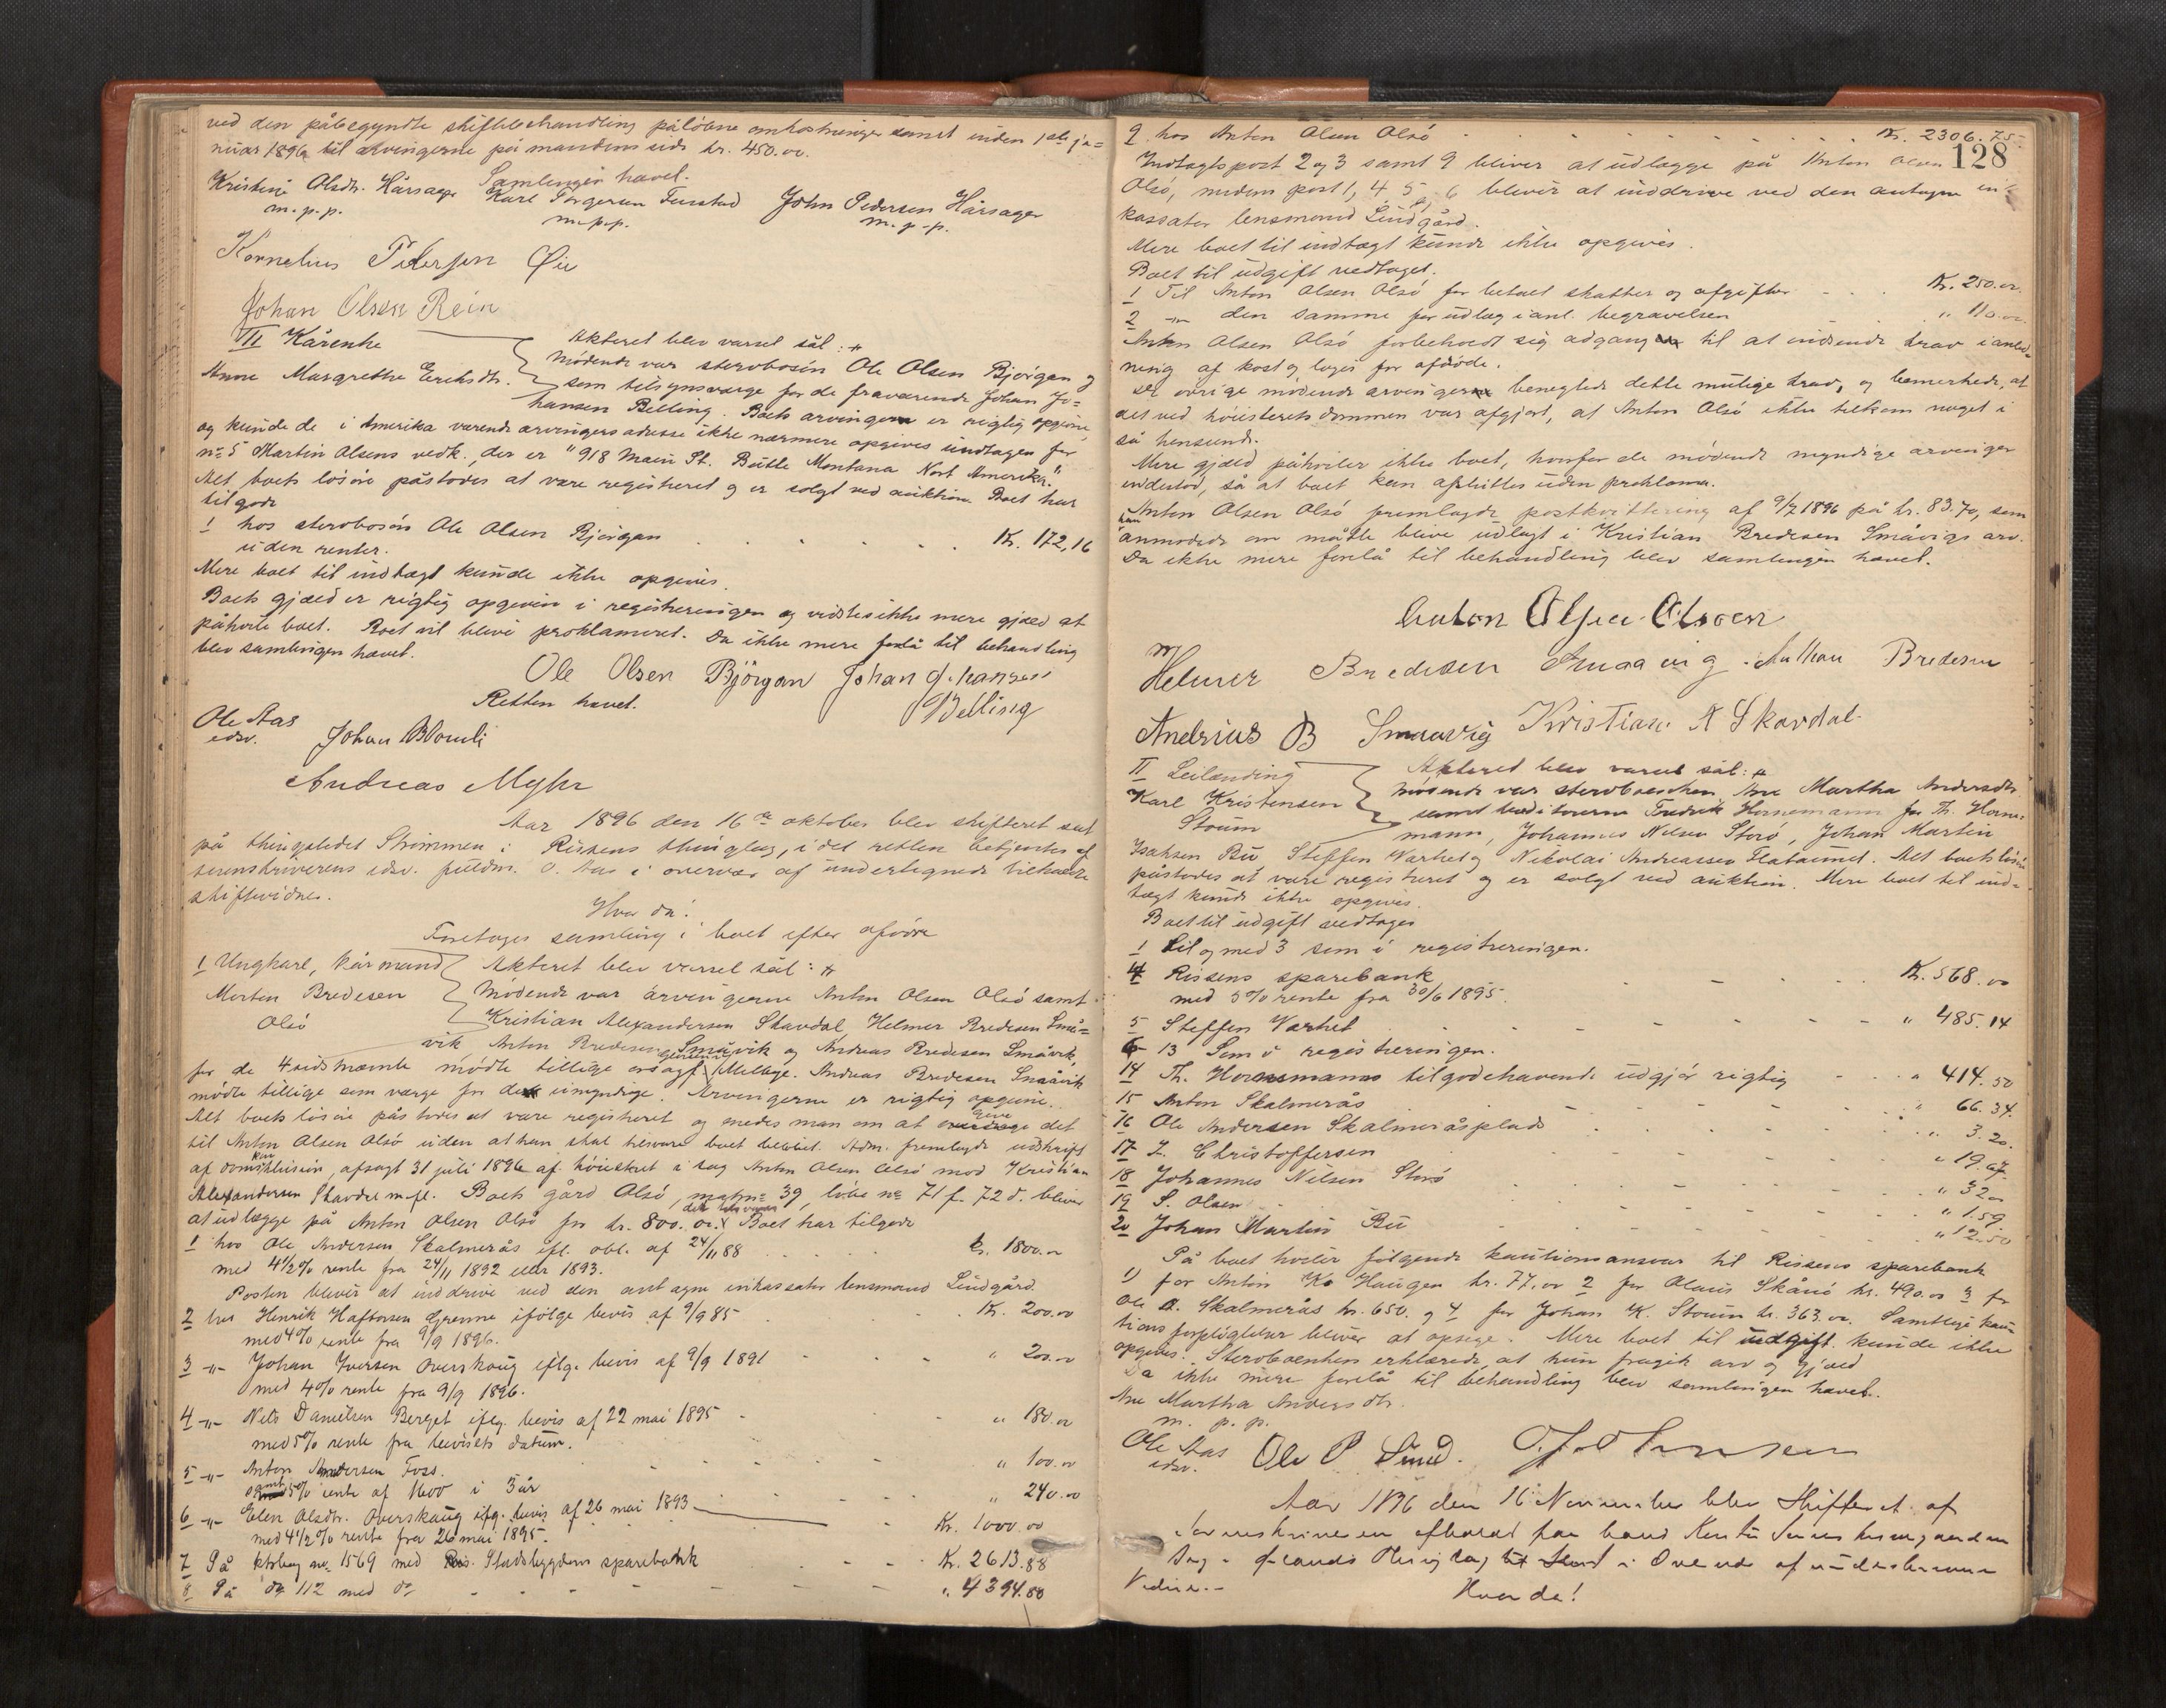 ved den påbegyndte skiftebehandling påløbne omkostninger samt inden 1ste ja=
nuar 1896 til arvingerne på mandens side kr. 450.00.
Samlingen hævet.
Kristine Olsdtr. Hårsager Karl Torgersen Fenstad John Pedersen Hårsager
m.p.p. m.p.p. m.p.p.
Kornelius Petersen Øie
Johan Olsen Rein
III Kårenke
Anne Margrethe Ericksdtr.
Akteret blev varsel sål: #
Mødende var sterbosøn Ole Olsen Bjørgan og
som tilsynsværge for de fraværende Johan Jo=
hansen Belling. Boets arvinger er rigtig opgivne
og kunde de i Amerika værende arvingers adresse ikke nærmere opgives undtagen for
no 5 Martin Olsens vedk., der er "918 Main St. Butte Montana Nort Amerika."
Alt boets løsøre påstodes at være registreret og er solgt ved auktion. Boet har
tilgode
1 hos sterbosøn Ole Olsen Bjørgan . . . . . Kr. 172,16
uden renter.
Mere boet til indtægt kunde ikke opgives.
Boets gjæld er rigtig opgiven i registreringen og vidstes ikke mere gjæld at
påhvile boet. Boet vil blive proklameret. Da ikke mere forelå til behandling
blev samlingen hævet.
Ole Olsen Bjørgan Johan Johansen
Belling
Retten hævet.
Ole Aas
edsv.
Johan Blomli
Andreas Myhr
Aar 1896 den 16de oktober blev skifteret sat
på thingstedet Strømmen i Rissens thinglag, idet retten betjentes af
sorenskriverens edsv. fuldm. O. Aas i overvær af undertegnede tilkaldte
skiftevidner.
Hvor da!
Foretoges samling i boet efter afdøde
1 Ungkarl, kårmand
Morten Bredesen
Olsø
Akteret blev varsel sål: #
Mødende var arvingerne Anton Olsen Olsø samt
Kristian Alexandersen Skavdal, Helmer Bredesen Små=
vik Anton Bredesen Småvik og Andreas Bredesen Småvik,
for de 4 sidstnævnte mødte tillige Mellbye. Andreas Bredesen Småvik
mødte tillige som værge for de umyndige. Arvingerne er rigtig opgivne.
Alt boets løsøre påstodes at være registreret og enedes man om at give det
til Anton Olsen Olsø uden at han skal tilsvare boet beløbet. Adm. fremlagde udskrift
af domskonklusion, afsagt 31 juli 1896 af høiesteret i sag Anton Olsen Olsø mod Kristian
Alexandersen Skavdal m.fl. Boets gård Olsø, matr.no 39, løbe no 71 f. 72 d. bliver
at udlægge på Anton Olsen Olsø for kr. 800.00. Boet har tilgode
1 hos Ole Andersen Skalmerås ifl. obl. af 24/11 88 . . . . . kr. 1800.00
med 4 1/2% rente fra 24/11 1892 eller 1893.
Posten bliver at inddrive ved den antagne inkassator lensmand Lindgård.
2 hos Henrik Haftorsen Grønne ifølge bevis af 9/9 85 . . Kr. 200.00
med 4% rente fra 9/9 1896.
3 -"- Johan Iversen Overskaug iflg. bevis af 9/9 1891 . . . " 200.00
med 4% rente fra 9/9 1896.
4 -"- Nils Danielsen Berget iflg. bevis af 22 mai 1895 . . . " 180.00
med 5% rente fra bevisets datum.
5 -"- Anton Andersen Foss. . . . . . " 100.00
samt 5% rente af 1600 i 3 år . . . . " 240.00
6 -"- Elen Olsdtr. Overskaug iflg. bevis af 26 mai 1893 . . Kr. 1000.00
med 4 1/2% rente fra 26 mai 1895.
7 På ktrbog no. 1569 med Stadsbygdens sparebank . . . Kr. 2613.88
8 På do 112 med do . . . . . " 4394.80
128
9 hos Anton Olsen Olsø . . . . . . Kr. 2306.75
Indtægtspost 2 og 3 samt 9 bliver at udlægge på Anton Olsen
Olsø, medens post 1, 4, 5, 6 bliver at inddrive ved den antagne in=
kassator lensmand Lindgård.
Mere boet til indtægt kunde ikke opgives.
Boet til udgift vedtaget.
1 Til Anton Olsen Olsø for betalt skatter og afgifter . . . Kr. 250.00.
2 -"- den samme for udlæg i anl. begravelsen . . " 110.00
Anton Olsen Olsø forbeholdt sig adgang til at indsende krav i anled=
ning af kost og logis for afdøde.
De øvrige mødende arvinger benegtede dette mulige krav, og bemerkede, at
det ved høiesteretsdommen var afgjort, at Anton Olsø ikke tilkom noget i
så henseende.
Mere gjæld påhviler ikke boet, hvorfor de mødende myndige arvinger
indestod, så at boet kan afsluttes uden proklama.
Anton Olsen Olsø fremlagde postkvittering af 9/7 1896 på kr. 83.70, som
han anmodede om måtte blive udlagt i Kristian Bredesen Småvigs arv.
Da ikke mere forelå til behandling blev samlingen hævet.
Anton Olsen Olsøen
Helmer Bredesen Smaavig Anthon Bredesen
Andrias B Smaavig Kristian A Skavdal
II Leilænding
Karl Kristensen
Stoum
Akteret blev varsel sål: #
Mødende var sterboenken Ane Martha Andersdtr
samt kreditorerne Fredrik Hornemann for Th. Horne=
mann, Johannes Nilsen Storø, Johan Martin
Isaksen Bu, Steffen Varhet og Nikolai Andreassen Flataunet. Alt boets løsøre
påstodes at være registreret og er solgt ved auktion. Mere boet til ind=
tægt kunde ikke opgives.
Boet til udgift vedtoges
1 til og med 3 som i registreringen.
4 Rissens sparebank . . . . . Kr. 568.00
med 5% rente fra 30/6 1895.
5 Steffen Varhet . . . . . " 485.14
6 - 13 Som i registreringen.
14 Th. Hornemanns tilgodehavende udgjør rigtig . . " 414.50
15 Anton Skalmerås . . . . . " 66.34.
16 Ole Andersen Skalmeråsplads . . . . " 3.20.
17 Z. Christoffersen . . . . . " 19.67
18 Johannes Nilsen Storø . . . . . " 32.00
19 S. Olsen . . . . . " 1.59
20 Johan Martin Bu . . . . . " 12.50
På boet hviler følgende kautionsansvar til Rissens sparebank
1) for Anton K. Haugen kr. 77.00 2 for Olaus Skånø kr. 490.00 3 for
Ole A. Skalmerås kr. 650. og 4 for Johan K. Stoum kr. 363.00. Samtlige kau
tionsforpligtelser bliver at opsige. Mere boet til udgift kunde ikke
opgives. Sterboenken erklærede, at hun fragik arv og gjæld
Da ikke mere forelå til behandling blev samlingen hævet.
Ane Martha Andersdtr.
m. p. p.
Ole Aas
edsv.
Ole P Sund.
Aar 1896 den 16 November blev Skifteret af
Sorenskriveren afholdt paa hans Kontor
Thinglag i Overvær af undertegnede
Vidner.-
Hvor da!